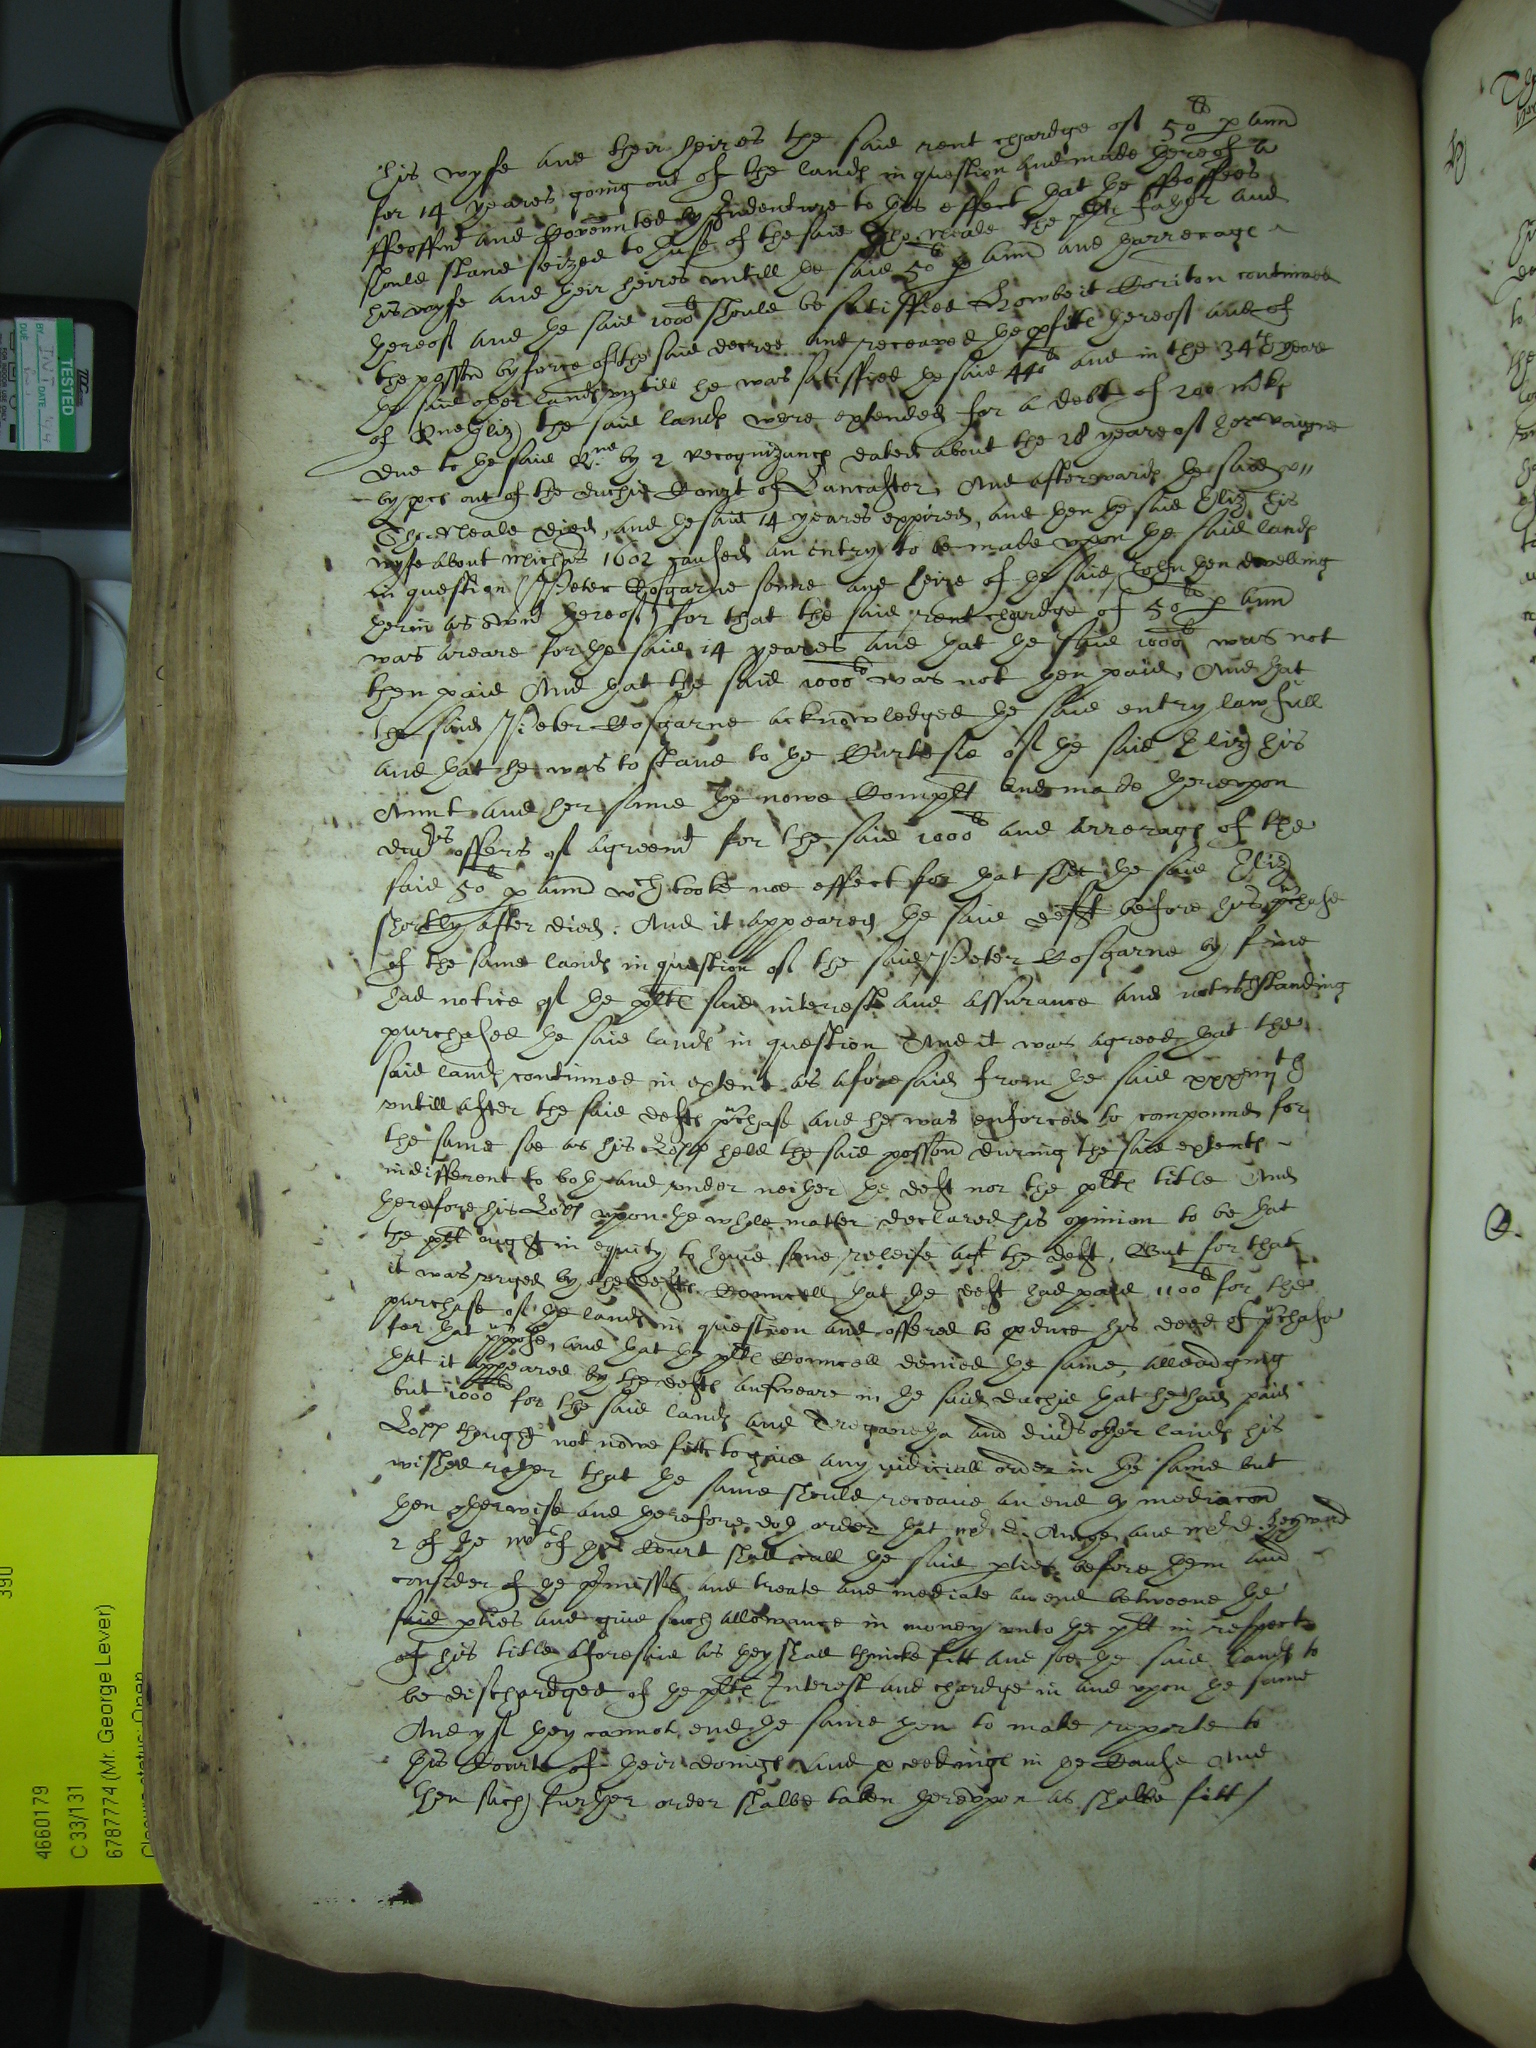 his wyfe and their heires the said rent chardge of 50li p ann
for 14 yeares going out of the lands in question and made thereof a
ffeoffmt and Covennted by Indenture to this effect that the ffeoffees
should stand seized to thuse of the said Tho: Neale the plts father and
his wyfe and their heires vntill the said 50li p ann and tharrerage
thereof and the said 1000li should be satisfied Howbeit Coriton continued
the possion by force of the said decree and receaved the pfitts thereof and of
the said other lands vntill he was satisfied the said 440li and in the 34th yeare
of Que Eliz the said lands were extended for a debt of 200 mrks
due to the said Qne by 2 recognizances dated about the 28 yeare of her raigne
by pces out of the duchie Court of Lancaster. And afterwards the said
Tho: Neale died, and the said 14 yeares expired, and then the said Eliz his
wyfe about Michas 1602 caused an entry to be made vpon the said lands
in question (Peter Cosgarne sonne and heire of the said John then dwelling
therin as ownr thereof) for that the said rent chardge of 50li p ann
was areare for the said 14 yeares and that the said 1000li was not
then paid And that the said 1000li was not then paid, And that
the said Peter Cosgarne acknowledged the said entry lawfull
and that he was to stand to the Curtesie of the said Eliz his
Aunt and her sonne the nowe Complt and made therevpon
divrs offers of agreemt for the said 1000li and arrerags of the
said 50li p ann wch tooke noe effect for that shee the said Eliz
shortly after died. And it appeared the said deft before his prchase
of the same lands in question of the said Peter Cosgarne by fine
had notice of the plts said interest and assurance and notwthstanding
purchased the said lands in question And it was agreed that the
said lands continued in extent as aforesaid from the said xxxiiijth
vntill after the said defts prchase and he was enforced to compound for
the same soe as his Lopp held the said possion during the said extents
indifferent to both and vnder neither the deft nor the plts title And
therefore his Lopp vpon the whole matter declared his opinion to be that
the plt ought in equity to have some releife agt the deft, But for that
it was vrged by the defts Councell that the deft had paid 1100li for the
purchase of the lands in question and offered to pduce his deed of prchase
for that prpose, and that the plts Councell denied the same alleadging
that it appeared by the defts answeare in the said duchie that he had paid
but 1000li for the said lands and Tregonetha and divrs other lands his
Lopp thought not nowe fitt to give any iudiciall order in the same but
wished rather that the same should receave an end by mediacon
then otherwise and therefore doth order that mr d. Amye and mr d. Heyward
2 of the mrs of this Court shall call the said pties before them and
consider of the prmisses and treate and mediate an end betweene the
said pties and give such allowance in money vnto the plt in respect
of his title aforesaid as they shall thincke fitt and soe the said lands to
be dischardged of the plts Interest and chardge in and vpon the same
And yf they cannot end the same then to make reporte to
this Courte of their doings and pceedings in the Cause And
then such further order shalbe taken therevpon as shalbe fitt /
TESTED
BY INT DATE
DUE
390
4660179
C 33/131
6787774 (Mr. George Lever)